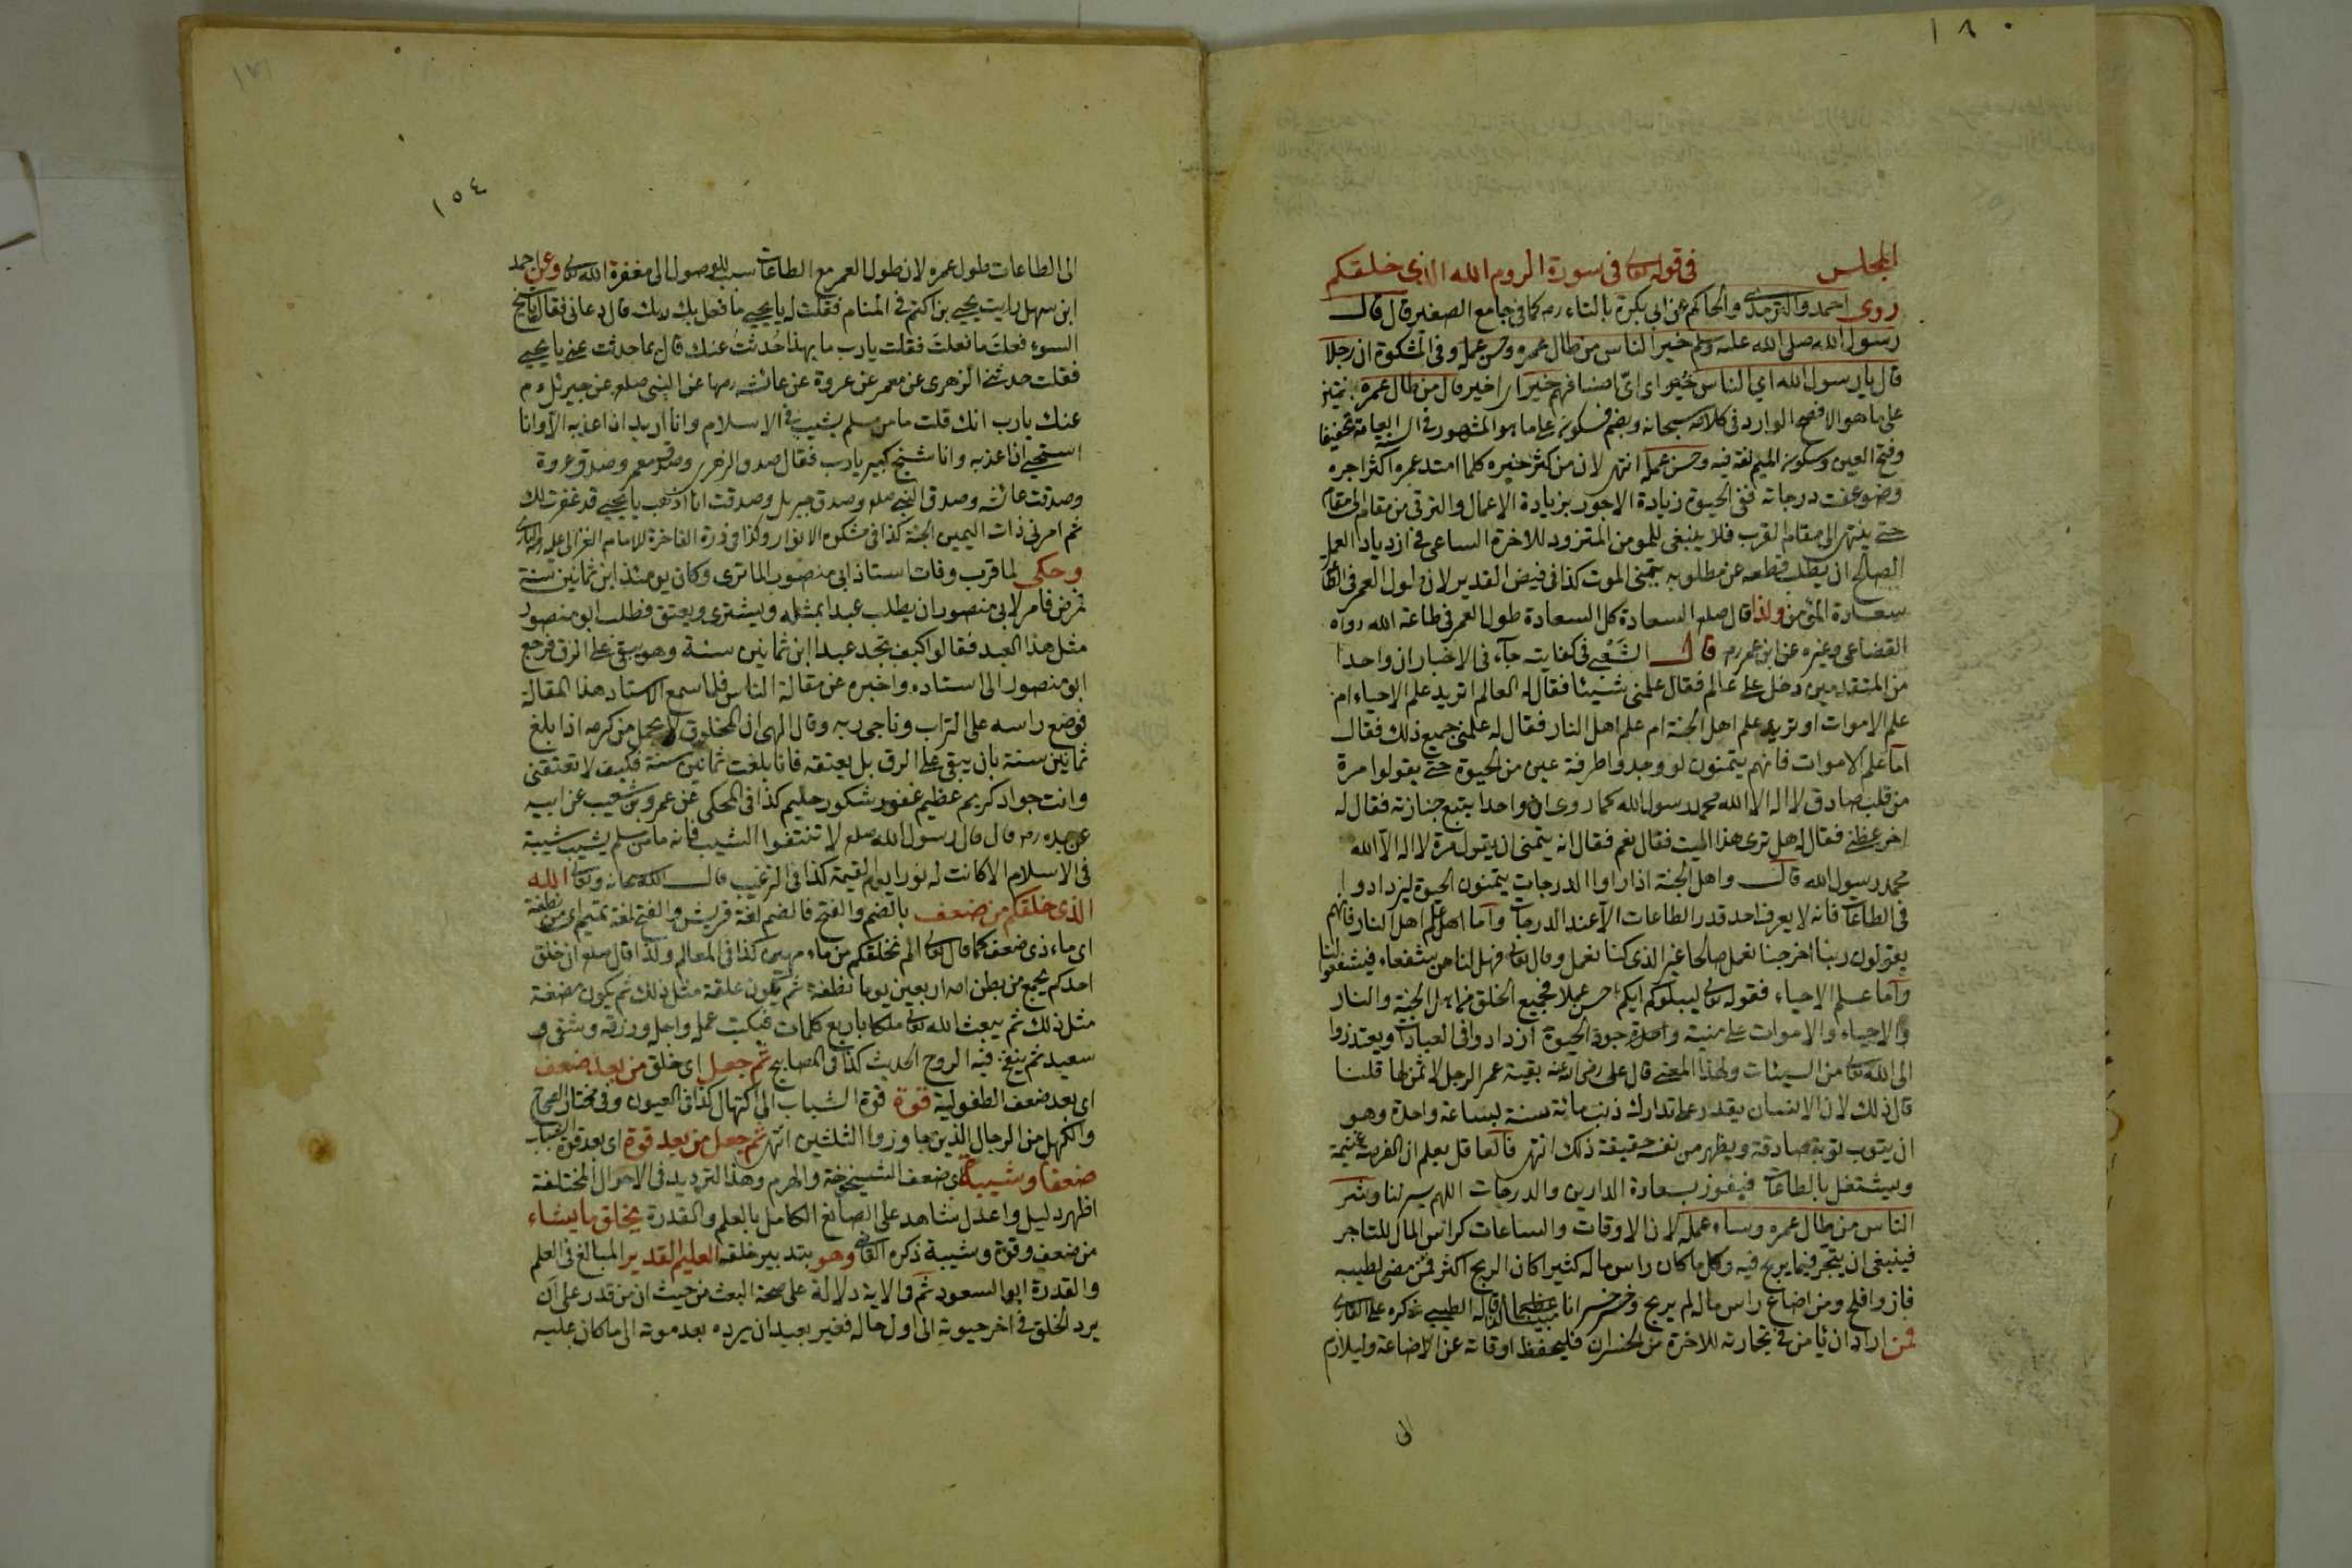 ١٨٠
المجلس في قوله تعالى في سورة الروم الله الذي خلقكم
روى احمد والترمذي والحاكم عن ابي بكرة بالتاء رضه كما في جامع الصغير قال قال
رسول الله صلى الله عليه وسلم خير الناس من طال عمره وحسن عمله وفي المشكوة ان رجلا
قال يا رسول الله اي الناس خير اى اىّ اصنافهم خير قال من طال عمره بضمتين
على ما هو الافصح الوارد في كلامه سبحانه وبضم فسكون على ما هو المشهور في السنة العامة تخفيفا
وفتح العين وسكون الميم لغة فيه وحسن عمله انتهى لان من كثر خيره كلما امتد عمره اكثر اجره
وضوعفت درجاته ففي الحيوة زيادة الاجور بزيادة الاعمال والترقى من مقام الى مقام
حتى ينتهى الى مقام القرب فلا ينبغى للمومن المتزود للاخرة الساعى في ازدياد العمل
الصالح ان يطلب قطعه عن مطلوبه بتمنى الموت كذا في فيض القدير لان طول العمر في الطاعة
سعادة المؤمن ولذا قال صلعم السعادة كل السعادة طول العمر في طاعة الله رواه
القضاعى وغيره عن ابن عمر رضه قال الشعبى في كفايته جاء في الاخبار ان واحدا
من المتقدمين دخل على عالم فقال علمنى شيئا فقال له العالم اتريد علم الاحياء ام
علم الاموات او تريد علم اهل الجنة ام علم اهل النار فقال له علمنى جميع ذلك فقال
اما علم الاموات فانهم يتمنون لو وجدوا طرفة عين من الحيوة حتى يقولوا مرة
من قلب صادق لا اله الا الله محمد رسول الله كما روى ان واحدا يتبع جنازة فقال له
اخر عظنى فقال له هل ترى هذا الميت فقال نعم فقال انه يتمنى ان يقول مرة لا اله الا الله
محمد رسول الله قال واهل الجنة اذا راوا الدرجات يتمنون الحيوة ليزدادوا
في الطاعات فانه لا يعرف احد قدر الطاعات الا عند الدرجات واما علم اهل النار فانهم
يقولون ربنا اخرجنا نعمل صالحا غير الذى كنا نعمل وقال تعالى فهل لنا من شفعاء فيشفعوا لنا
واما علم الاحياء فقوله تعالى ليبلوكم ايكم احسن عملا فجميع الخلق من اهل الجنة والنار
والاحياء والاموات على منية واحدة يرجون الحيوة ازدادوا في العبادات ويعتذروا
الى الله تعالى من السيئات ولهذا المعنى قال على رضى الله عنه بقية عمر الرجل لا ثمن لها قلنا
قال ذلك لان الانسان يقدر على تدارك ذنب مائة سنة بساعة واحدة وهو
ان يتوب توبة صادقة ويظهر من نفسه حقيقة ذلك انتهى فالعاقل يعلم ان الفرصة غنيمة
ويشتغل بالطاعات فيفوز بسعادة الدارين والدرجات اللهم يسر لنا وشر
الناس من طال عمره وساء عمله لان الاوقات والساعات كراس المال للتاجر
فينبغى ان يتجر فيما يربح فيه وكل ما كان راس ماله كثيرا كان الربح اكثر فمن مضى لطيبه
فاز وافلح ومن اضاع راس ماله لم يربح وخسر خسرانا مبينا قاله الطيبى ذكره على القارى
فمن اراد ان يامن في تجارته للاخرة من الخسران فليحفظ اوقاته عن الاضاعة وليلازم
الى
١٥٤
الى الطاعات طول عمره لان طول العمر مع الطاعات سبب للوصول الى مغفرة الله تعالى وعن احمد
ابن سهل رايت يحيى بن اكثم في المنام فقلت له يا يحيى ما فعل بك ربك قال دعانى فقال يا شيخ
السوء فعلت ما فعلت فقلت يا رب ما بهذا حُدثتُ عنك قال بما حدثت عنى يا يحيى
فقلت حدثنى الزهرى عن معمر عن عروة عن عائشة رضها عن النبى صلعم عن جبرئل ءم
عنك يا رب انك قلت ما من مسلم يشيب في الاسلام وانا اريد ان اعذبه الا وانا
استحيى ان اعذبه وانا شيخ كبير يا رب فقال صدق الزهرى وصدق معمر وصدق عروة
وصدقت عائشة وصدق النبى صلعم وصدق جبريل وصدقت انا اذهب يا يحيى قد غفرت لك
ثم امر بى ذات اليمين الجنة كذا في مشكوة الانوار وكذا في درة الفاخرة للامام الغزالى عليه رحمة البارى
وحكى لما قرب وفات استاذ ابى منصور الماتريدى وكان يومئذ ابن ثمانين سنة
فمرض فامر لابى منصور ان يطلب عبدا بمثله ويشترى ويعتق فطلب ابو منصور
مثل هذا العبد فقالوا كيف تجد عبدا ابن ثمانين سنة وهو يبقى على الرق فرجع
ابو منصور الى استاده واخبره عن مقالة الناس فلما سمع الاستاد هذا المقالة
فوضع راسه على التراب وناجى ربه وقال الهى ان المخلوق لا يحمل من كرمه اذا بلغ
ثمانين سنة بان يبقى على الرق بل يعتقه فانا بلغت ثمانين سنة فكيف لا تعتقنى
وانت جواد كريم عظيم غفور شكور حليم كذا في المحكى عن عمرو بن شعيب عن ابيه
عن جده رضه قال قال رسول الله صلعم لا تنتفوا الشيب فانه ما من مسلم يشيب شيبة
في الاسلام الا كانت له نورا يوم القيمة كذا في الترغيب قال الله سبحانه وتعالى الله
الذى خلقكم من ضعف بالضم والفتح فالضم لغة قريش والفتح لغة تميم اى من نطفة
اى ماء ذى ضعف كما قال تعالى الم نخلقكم من ماء مهين كذا في المعالم ولذا قال صلعم ان خلق
احدكم يجمع من بطن امه اربعين يوما نطفة ثم يكون علقة مثل ذلك ثم يكون مضغة
مثل ذلك ثم يبعث الله تعالى ملكا باربع كلمات فيكتب عمله واجله ورزقه وشقى و
سعيد ثم ينفخ فيه الروح الحديث كذا في المصابيح ثم جعل اى خلق من بعد ضعف
اى بعد ضعف الطفولية قوة قوة الشباب الى اكتهال كذا في العيون وفي مختار الصحاح
والكهل من الرجال الذين جاوزوا الثلثين انتهى ثم جعل من بعد قوة اى بعد قوة الشباب
ضعفا وشيبة اى ضعف الشيخوخة والهرم وهذا الترديد في الاحوال المختلفة
اظهر دليل واعدل شاهد على الصانع الكامل بالعلم والقدرة يخلق ما يشاء
من ضعف وقوة وشيبة ذكره القاضى وهو بتدبير خلقه العليم القدير المبالغ في العلم
والقدرة ابو السعود ثم في الاية دلالة على صحة البعث من حيث ان من قدر على ان
يرد الخلق في اخر حيوته الى اول حاله فغير بعيد ان يرده بعد موته الى ما كان عليه